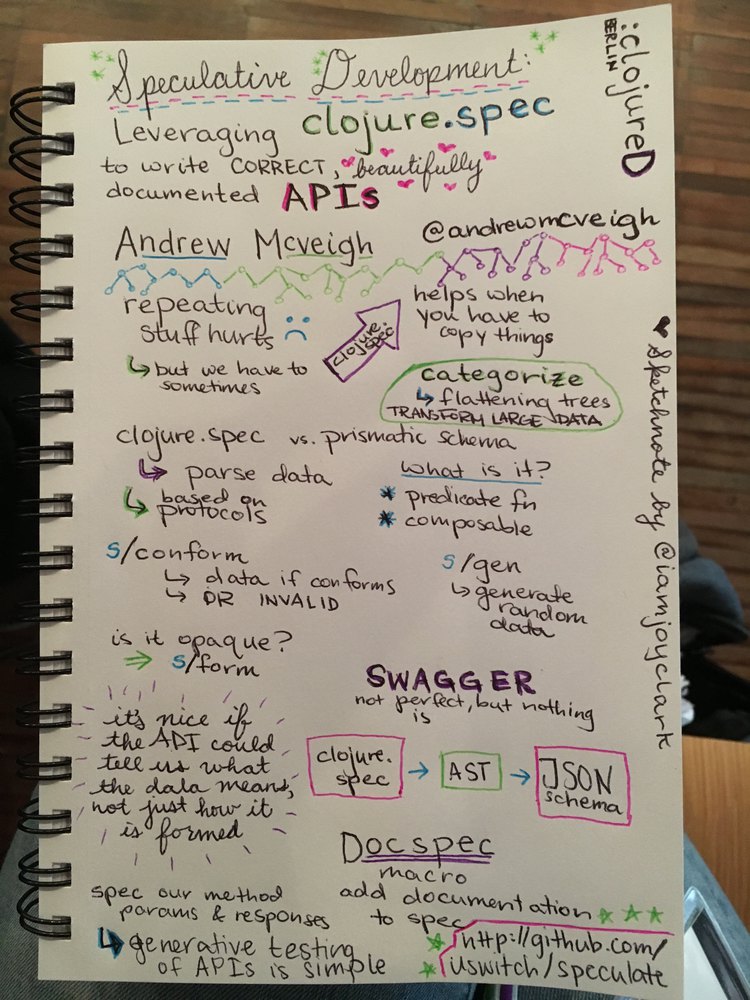 Speculative Development:
Leveraging clojure.spec
to write CORRECT, beautifully
documented APIs
:clojureD
BERLIN
Andrew Mcveigh
@andrewmcveigh
repeating
stuff hurts
but we have to
sometimes
clojure.
spec
helps when
you have to
copy things
categorize
flattening trees
TRANSFORM LARGE DATA
clojure.spec vs. prismatic schema
parse data
based on
protocols
what is it?
predicate fn
composable
s/conform
data if conforms
OR INVALID
s/gen
generate
random
data
is it opaque?
s/form
it's nice if
the API could
tell us what
the data means,
not just how it
is formed
SWAGGER
not perfect, but nothing
is
clojure.
spec
AST
JSON
schema
Docspec
macro
add documentation
to spec
spec our method
params & responses
generative testing
of APIs is simple
http://github.com/
uswitch/speculate
Sketchnote by @iamjoyclark